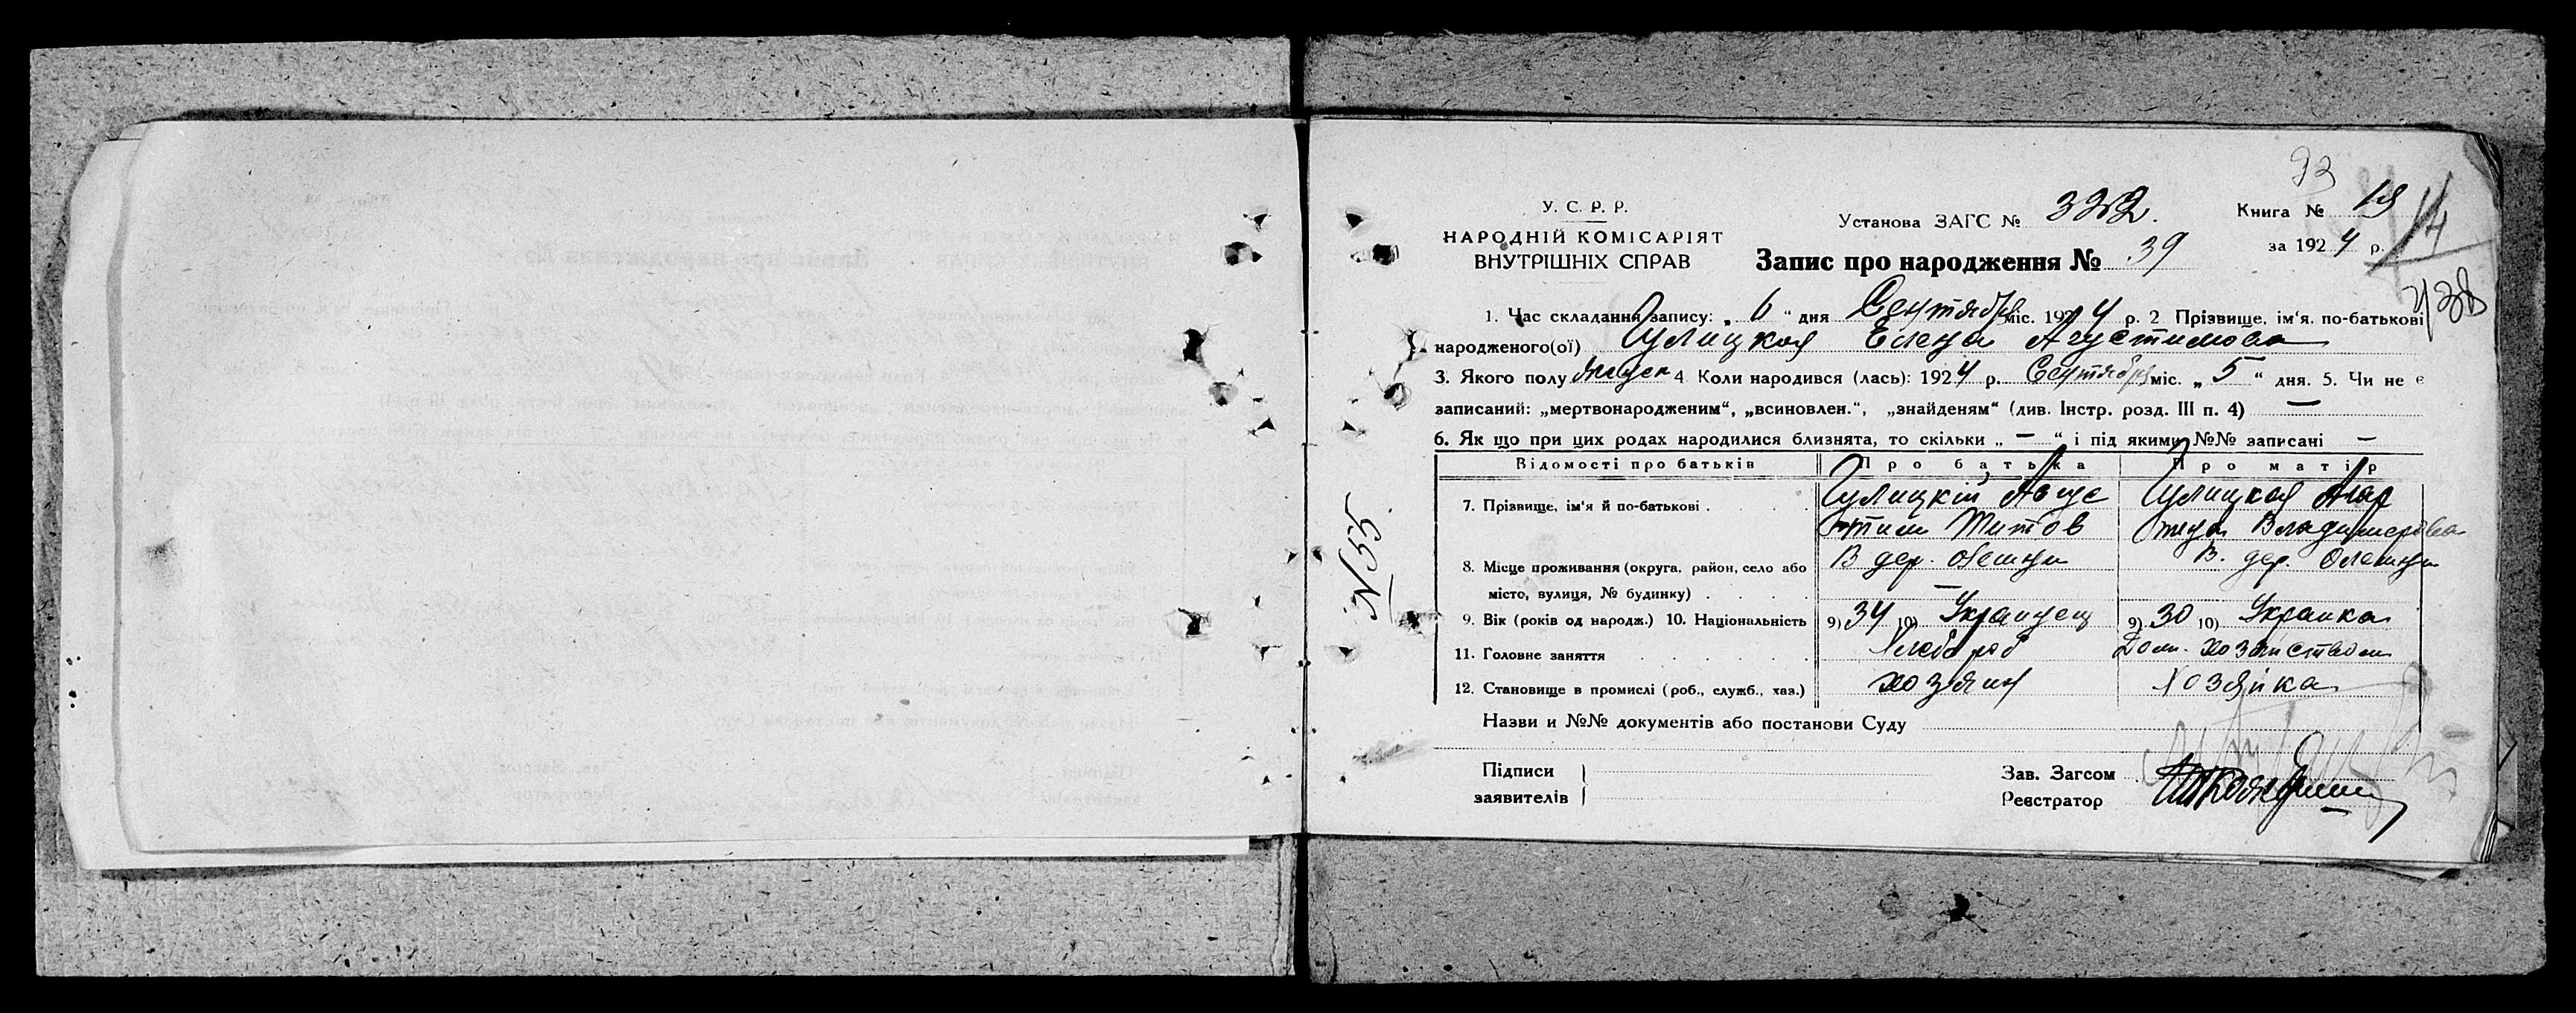 93
У. С. Р. Р.
НАРОДНІЙ КОМІСАРІЯТ
ВНУТРІШНІХ СПРАВ
Установа ЗАГС № 332.
Книга № 19
за 1924 р.
14
Запис про народження № 39
1. Час складання запису: „ 6 “ дня Сентября міс. 1924 р. 2 Прізвище, ім‘я, по-батькові
народженого(ої) Гулицкая Елена Агустимова
3. Якого полу 4 Коли народився (лась): 1924 р. Сентября міс. „ 5 “ дня. 5. Чи не є
записаний: „мертвонародженим“, „всиновлен.“, „знайденям“ (див. Інстр. розд. III п. 4) —
6. Як що при цих родах народилися близнята, то скільки „ — “ і під якими №№ записані —
Відомості про батьків Про батька Про матір
7. Прізвище, ім‘я й по-батькові . Гулицкій Авгус Гулицкая Агар
тим Титов Владимерова
8. Місце проживання (округа, район, село або В дер. В. дер.
місто, вулиця, № будинку) . —
9. Вік (років од народж.) 10. Національність 9) 34 10) Украинец 9) 30 10) Украинка
11. Головне заняття Хлебороб Дом. хозяйством
12. Становище в промислі (роб., служб., хаз.) хозяин Хозяйка
Назви и №№ документів або постанови Суду
Підписи
заявителів
Зав. Загсом
Реєстратор
N55